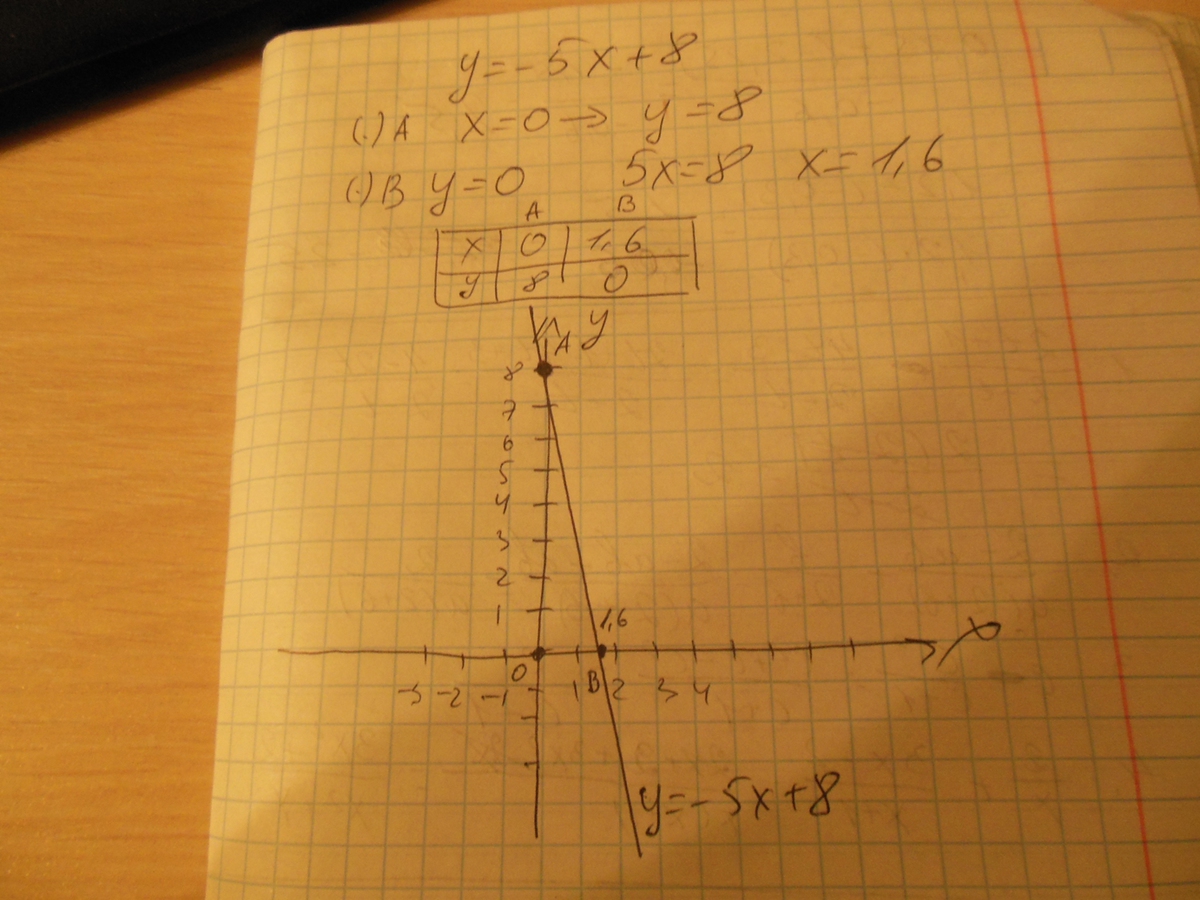 y=-5x+8
(·)A x=0 → y=8
(·)B y=0 5x=8 x=1,6
A B
x 0 1,6
y 8 0
y
A
8
7
6
5
4
3
2
1
1,6
x
0
-3 -2 -1 1 B 2 3 4
y=-5x+8